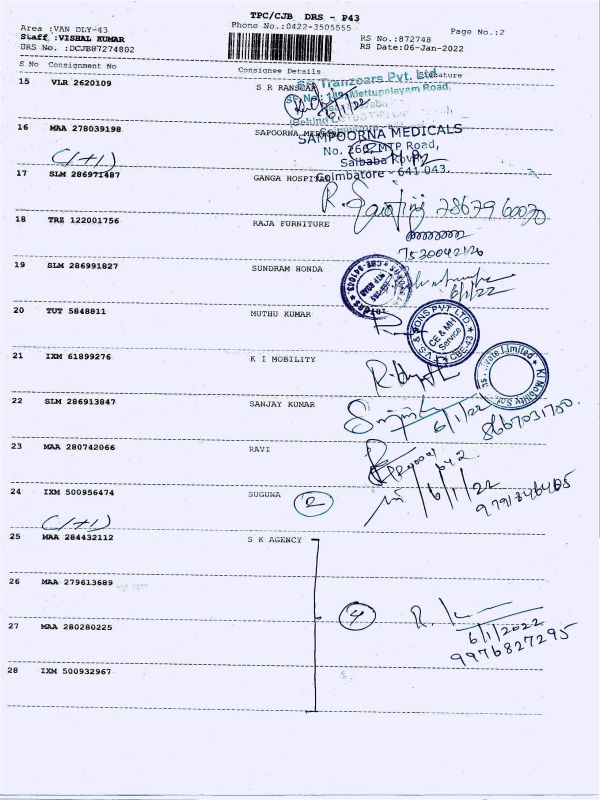 TPC/CJB DRS - P43
Area :VAN DLY-43
Phone No.:0422-3505555
Page No.:2
Staff :VISHAL KUMAR
RS No.:872748
DRS No. :DCJB87274802
RS Date:06-Jan-2022
S No Consignment No Consignee Details Signature
15 VLR 2620109 S R RANSCAR
Sri Tranzcars Pvt. Ltd.
Mettupalayam Road,
6/1/22
16 MAA 278039198 SAPOORNA MEDICAL
(1+1)
SAMPOORNA MEDICALS
No. 260, MTP Road,
Saibaba Kovil,
Coimbatore - 641 043.
17 SLM 286971487 GANGA HOSPITAL
18 TRZ 122001756 RAJA FURNITURE
7530042120
19 SLM 286991827 SUNDRAM HONDA
6/1/22
20 TUT 5848811 MUTHU KUMAR
& SONS PVT LTD
CE & MH
Service
CBE-43
21 IXM 61899276 K I MOBILITY
KI Mobility
Private Limited
22 SLM 286913847 SANJAY KUMAR
6/1/22
8667031700
23 MAA 280742066 RAVI
24 IXM 500956474 SUGUNA
2
6/1/22
(1+1)
25 MAA 284432112 S K AGENCY
26 MAA 279613689
4
27 MAA 280280225
6/1/2022
9976827295
28 IXM 500932967